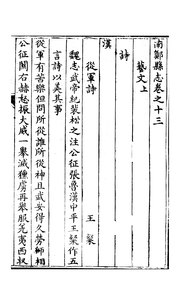 南鄭縣志卷之十三
藝文上
詩
漢
從軍詩 王粲
魏志武帝紀裴松之注公征張魯漢中平王粲作五
言詩以美其事
從軍有苦樂但問所從誰所從神且武安得久勞師相
公征關右赫怒振大威一舉滅獯虜再舉服羌夷西收